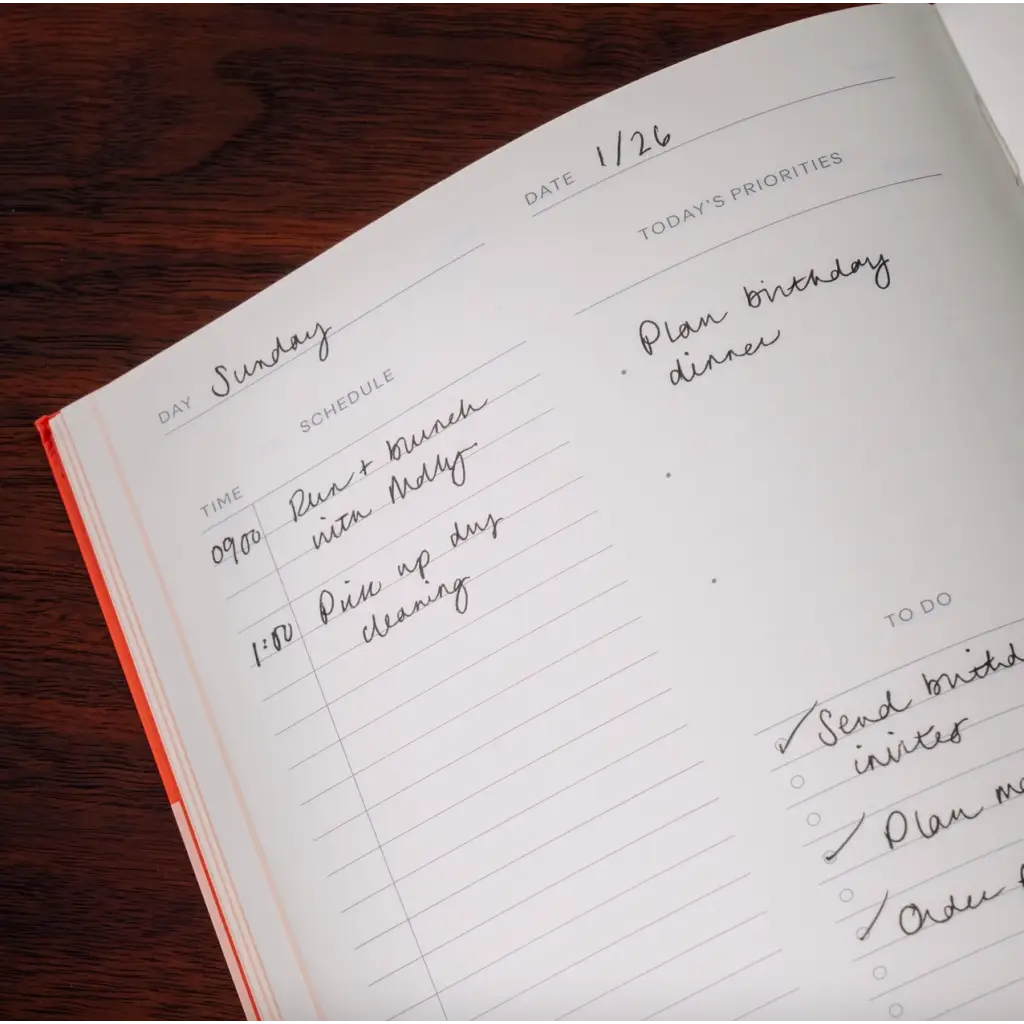 DATE 1/26
DAY Sunday
SCHEDULE
TIME
0900 Run + brunch
with Molly.
1:00 Pick up dry
cleaning
TODAY'S PRIORITIES
Plan birthday
dinner
TO DO
Send birthd
invites
Plan
Order